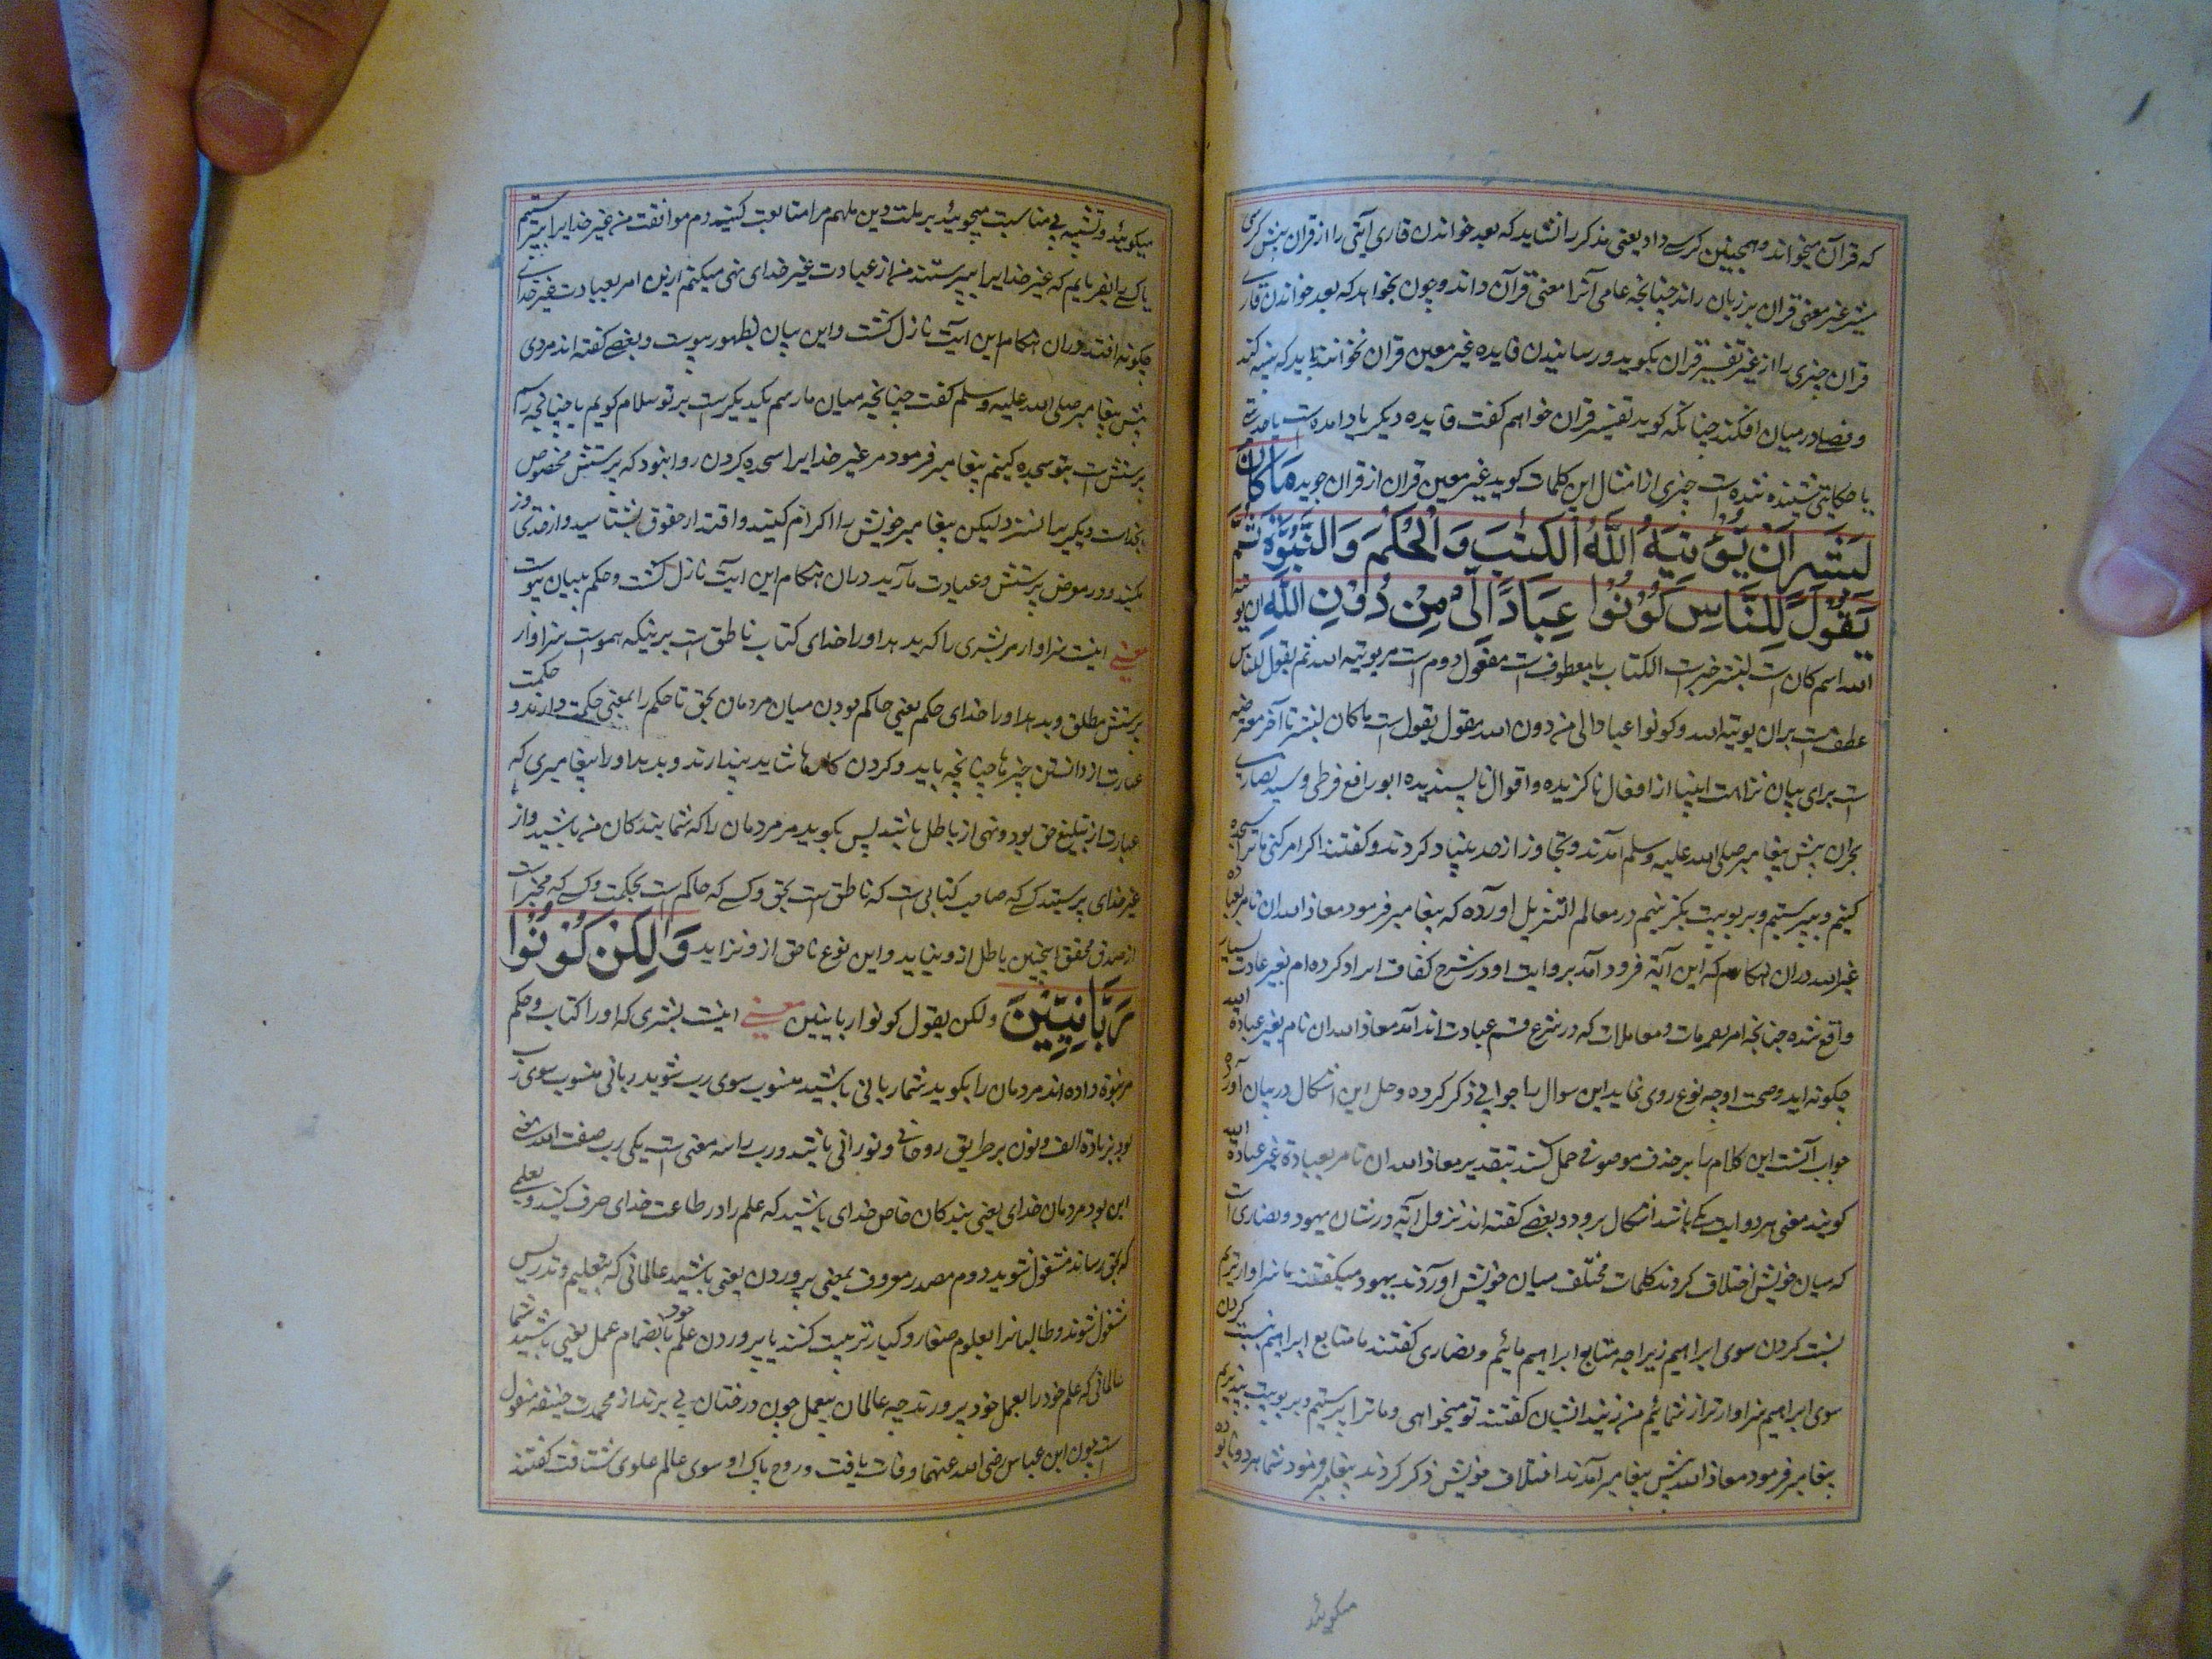 که قرآن میخواند و همچنین کرسے داد یعنی مذکر را نشاید که بعد خواندن قاری آیتی را از قران پیش کرسی
غیر معنی قران بر زبان راند چنانچه عامی آنرا معنی قرآن داند و چون بخواهد که بعد خواندن قاری
قران چیزی را از غیر تفسیر قران بکوید و رسانیدن فایده غیر معین قران نخوانند باید که تنبیه کند
و فصلے در میان افکند چنانکه کوید تفسیر قران خواهم کفت فایده دیکر یاد امده است
یا حکایتی شنیده شده است چیزی از امثال این کلمات کوید غیر معین قران از قران جوید مَا كَانَ
لِبَشَرٍ اَنْ يُّؤْتِيَهُ اللّٰهُ الْكِتٰبَ وَ الْحُكْمَ وَ النُّبُوَّةَ ثُمَّ
يَقُوْلَ لِلنَّاسِ كُوْنُوْا عِبَادًا لِّیْ مِنْ دُوْنِ اللّٰهِ ان یوتیه
الله اسم کان است لبشر خبر است الکتاب با معطوف است مفعول دوم است مر یوتیه الله ثم یقول للناس
عطف است بر ان یوتیه الله و کونوا عبادا لی من دون الله مقول یقول است ما کان لبشر تا آخر معترضه
است برای بیان نزاهت انبیا از افعال ناکزیده و اقوال ناپسندیده ابو رافع قرظی و سید نصاری
بحران پیش پیغامبر صلی الله علیه وسلم آمدند و تجاوز از حد بنیاد کردند و کفتند اکر امر کنی ما ترا سجده
کنیم و بپرستیم و بربوبیت بکزینیم در معالم التنزیل اورده که پیغامبر فرمود معاذ الله ان نامر بعباده
غیر الله دران هنکام که این آیة فرود آمد بروایت او در شرح کفاف ایراد کرده ام بغیر عبادت
واقع شده چنانچه امر بعمرمات و معاملات که در شرع قسم عبادت اند آمد معاذ الله ان نامر بغیر عبادة الله
چکونه اید و صحت او چه نوع روی نماید این سوال را جوابی ذکر کرده و حل این اشکال در بیان آورده
جواب آنست این کلام را بر حذف موصوفی حمل کنند بتقدیر معاذ الله ان نامر بعبادة غیر عبادة الله
کویند معنی هر دو ایت یکے باشد اشکال برود و بعضے کفته اند نزول آیة در شان یهود و نصاری است
که میان خویش اختلاف کردند کلمات مختلف میان خویش اوردند یهود میکفتند ما سزاوار تریم
نسبت کردن سوی ابراهیم زیراچه متابع ابراهیم مائیم و نصاری کفتند ما متابع ابراهیم نسبت کردن
سوی ابراهیم سزاوار تر از شمائیم ایشان کفتند تو میخواهی و ما ترا پرستیم و بربوبیت پذیریم
پیغامبر فرمود معاذ الله پیش پیغامبر آمدند اختلاف خویش ذکر کردند پیغامبر فرمود شما هر دو
میکویند
میکویند و تشبیه بے مناسبت میجویند بر ملت و دین ملهم مرا متابعت کنید دم موافقت من غیر خدایرا پرستیم
یا کسے را بفرمایم که غیر خدایرا بپرستند من از عبادت غیر خدای نهی میکنم از من امر بعبادت غیر خدای
چکونه افتد دران هنکام این آیت نازل کشت و این بیان بظهور پیوست و بعضے کفته اند مردی
پیش پیغامبر صلی الله علیه وسلم کفت چنانچه میان ما رسم یکدیکرست بر تو سلام کویم یا چنانچه رسم
پرستش است بتو سجده کنیم پیغامبر فرمود مر غیر خدایرا سجده کردن روا نبود که پرستش مخصوص
بخداست دیکریرا نسزد لیکن پیغامبر خویش را اکرام کنید و اقتدار حقوق بشناسید و از حد تجاوز
مکنید و در موضع پرستش و عبادت مآرید دران هنکام این ایت نازل کشت و حکم ببیان پیوست
معنے اینست سزاوار مر بشری را که بدهد او را خدای کتاب ناطق است برینکه هموست سزاوار
پرستش مطلق و بدهد او را خدای حکم یعنی حاکم بودن میان مردمان بحق تا حکم را بمعنی حکمت دارند و حکمت
عبارت از دانستن چیزها چنانچه باید و کردن کارها شاید پندارند و بدهد او را پیغامبری که
عبارت از تبلیغ حق بود و نهی از باطل باشد پس بکوید مر مردمان را که شما بندکان من باشید و از
غیر خدای پرستید کسے که صاحب کتابی است که ناطق است بحق و کسے که حاکم است بحکمت و کسے که مخبر است
از صدق محقق اینچنین باطل از و نیاید و این نوع ناحق از و نزاید وَ لٰكِنْ كُوْنُوْا
رَبَّانِيّٖنَ ولکن یقول کونوا ربانیین معنے اینست بشری که او را کتاب و حکم
و نبوة داده اند مردمان را بکوید شما ربانی باشید منسوب سوی رب شوید ربانی منسوب سوی رب
بود بزیادة الف و نون بر طریق روحانی و نورانی باشد و رب را سه معنی است یکی رب صفت الله معنی
این بود مردمان خدای یعنی بندکان خاص خدای باشید که علم را در طاعت خدای صرف کنید و بعلمی
که بحق رساند مشغول شوید دوم مصدر معروف بمعنی پروردن یعنی باشید عالمانی که بتعلیم و تدریس
مشغول شوند و طالبانرا بعلوم صغار و کبار تربیت کنند یا پروردن علم خود بانضمام عمل یعنی باشید شما
عالمانی که علم خود را بعمل خود پرورند چه عالمان بیعمل چون درختان بے برند از محمد بن حنیفه منقول
است چون ابن عباس رضی الله عنهما وفات یافت و روح پاک او سوی عالم علوی شتافت کفتند